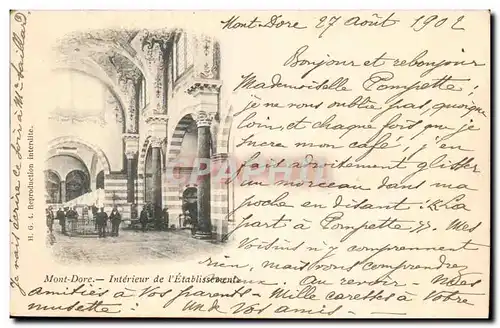 Mont-Dore 27 Août 1902
Bonjour et rebonjour
Mademoiselle Pompette,
je ne vous oublie pas, quoique
loin, et chaque fois que je
sucre mon café, j'en
fait adroitement glisser
un morceau dans ma
poche en disant. «La
part à Pompette». Mes
voisins n'y comprennent
rien, mais vous comprendrez
Au revoir - Mille
amitiés à Vos parents - Mille caresses à Votre
musette: Un de Vos amis -
Je vais écrire ce soir à Mr
H. G. L. Reproduction interdite.
Mont-Dore. — Intérieur de l'Établissement